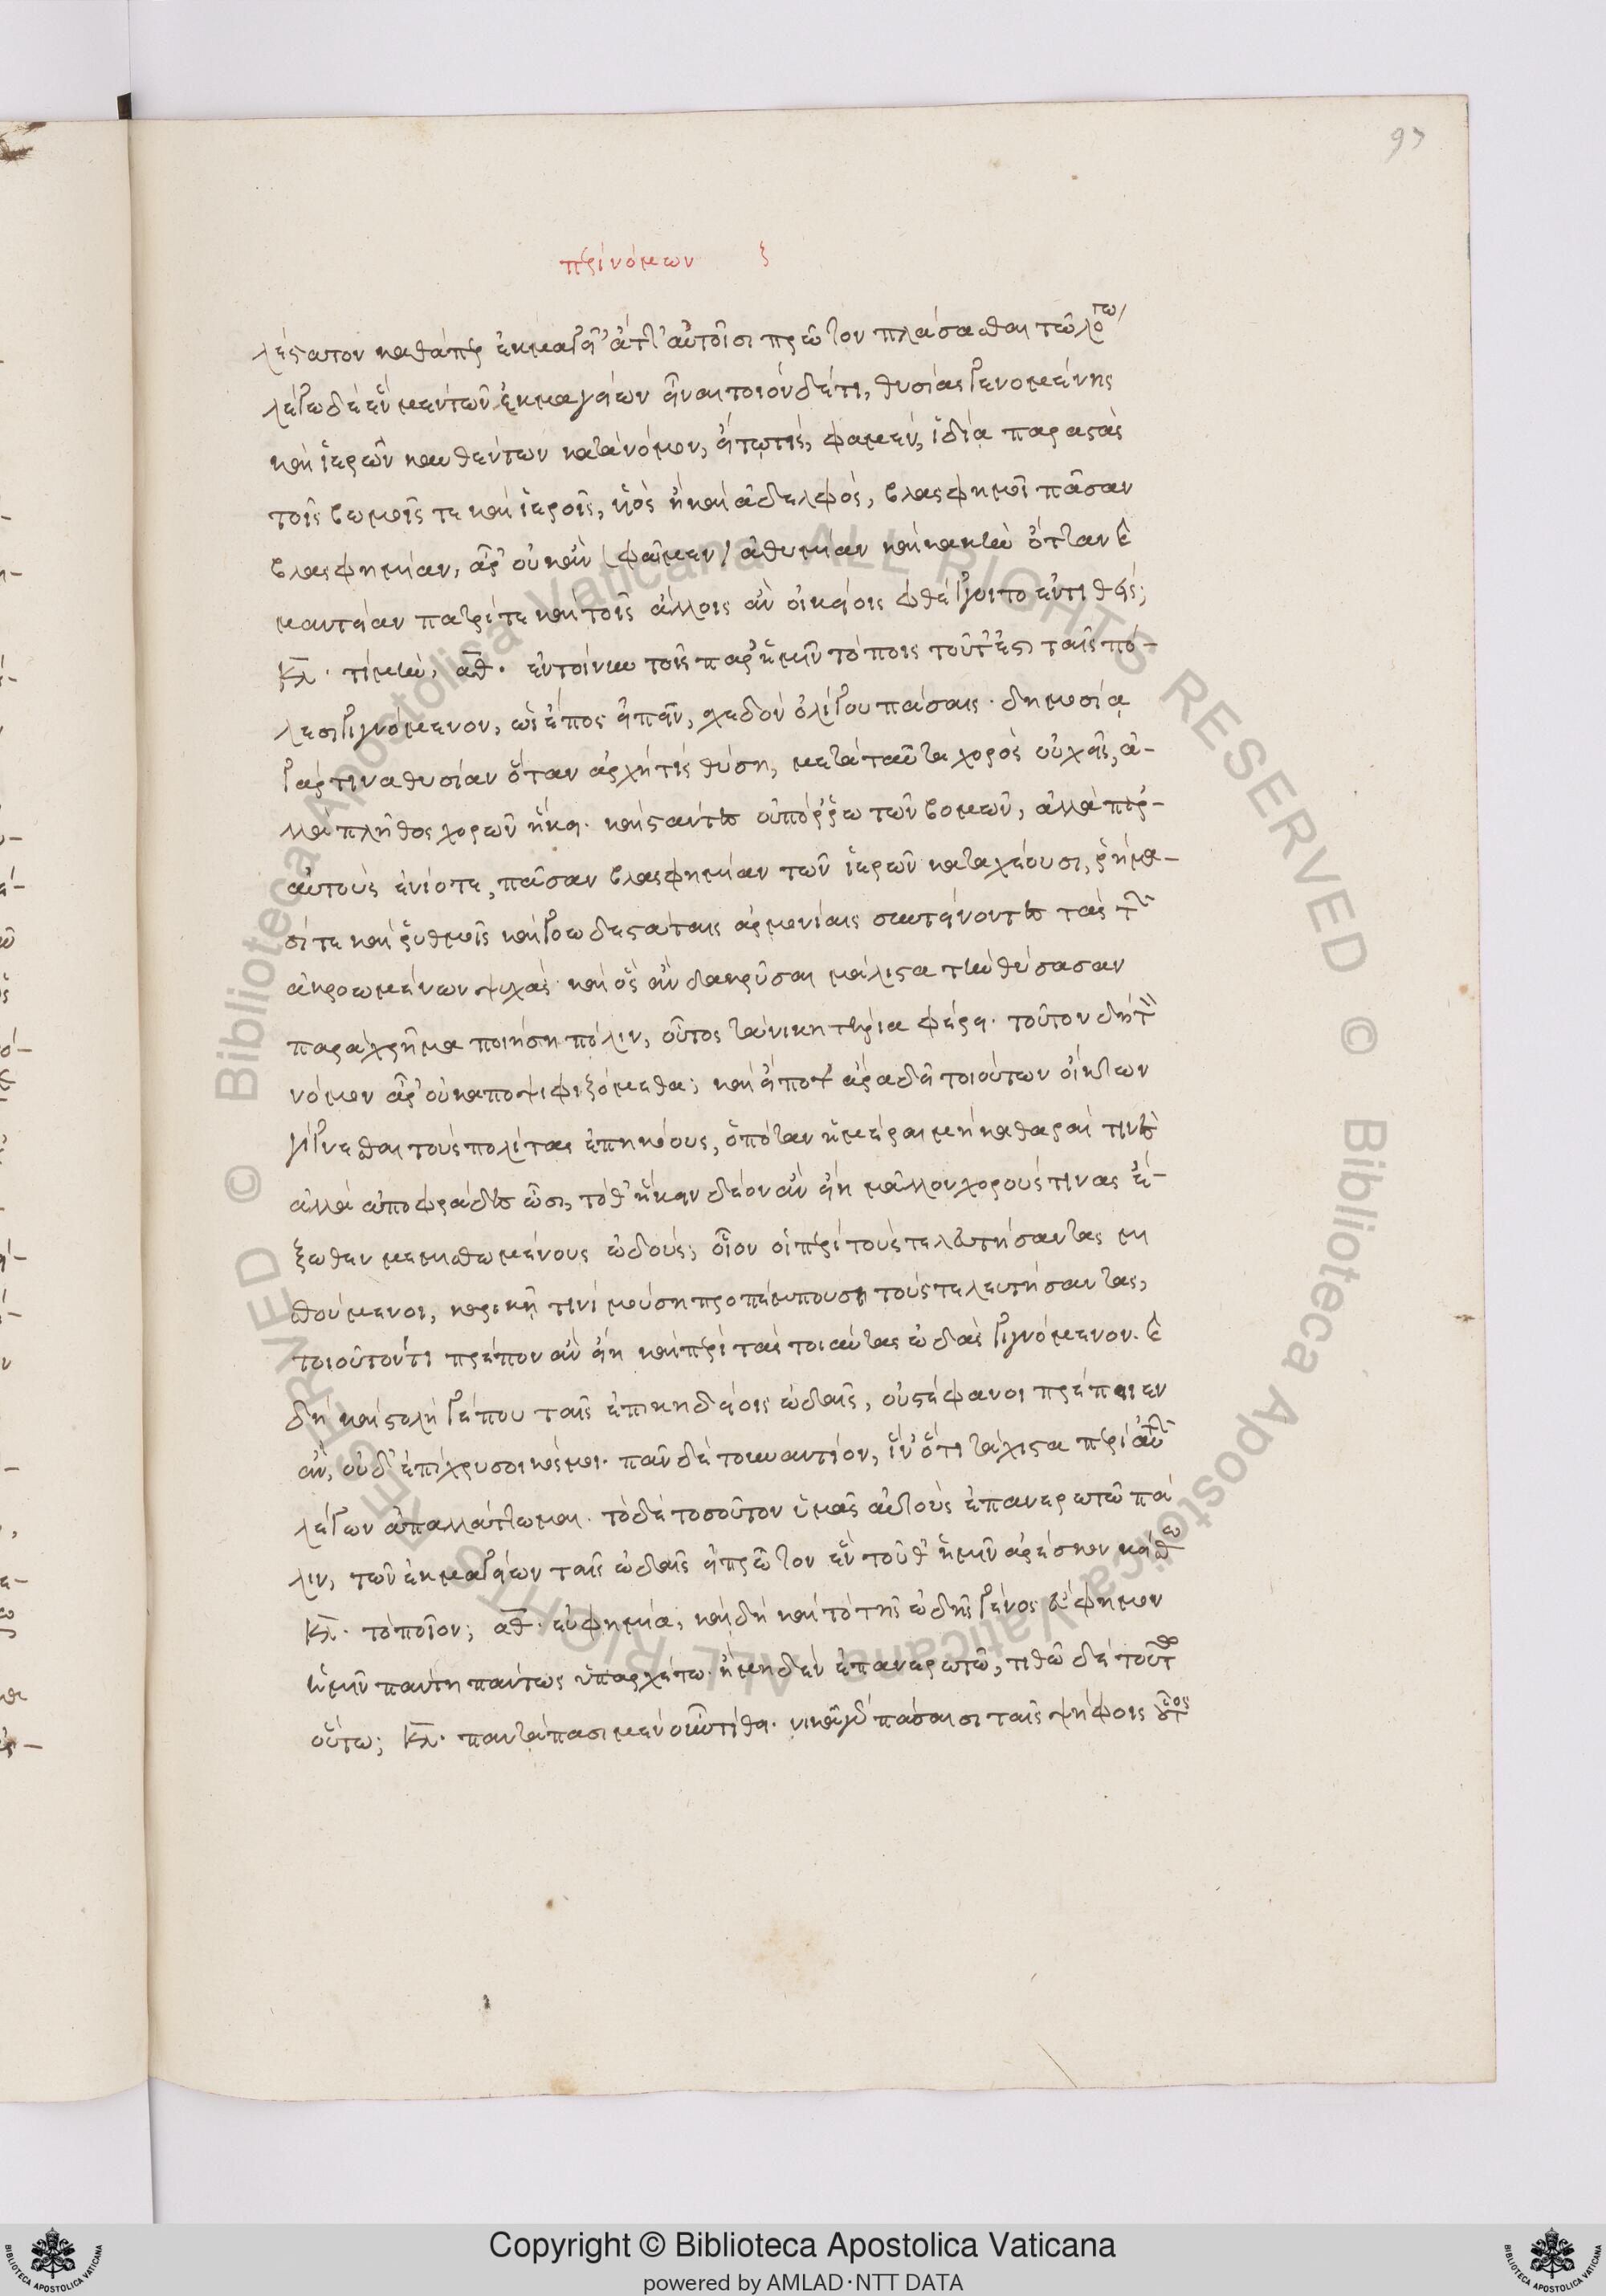 97
περὶ νόμων ζ
λέστατον καθάπερ ἐκμαγεῖ' ἄττ' αὐτοῖσι πρῶτον πλάσασθαι τῷ λόγω,
λέγω δὲ ἓν μὲν τῶν ἐκμαγείων εἶναι τοιόνδέ τι, θυσίας γενομένης
καὶ ἱερῶν καυθέντων κατὰ νόμον, εἴ τῳ τις, φαμὲν, ἰδίᾳ παραστὰς
τοῖς βωμοῖς τε καὶ ἱεροῖς, υἱὸς ἢ καὶ ἀδελφός, βλασφημοῖ πᾶσαν
βλασφημίαν, ἆρ' οὐκ ἂν (φαῖμεν) ἀθυμίαν καὶ κακὴν ὄτταν καὶ
μαντείαν πατρί τε καὶ τοῖς ἄλλοις ἂν οἰκείοις φθέγγοιτο ἐντιθείς;
Κλ. τί μήν, ἀθ. ἐν τοίνυν τοῖς παρ' ἡμῖν τόποις τοῦτ' ἐστὶ ταῖς πό-
λεσι γιγνόμενον, ὡς ἔπος εἰπεῖν, σχεδὸν ὀλίγου πάσαις. δημοσίᾳ
γάρ τινα θυσίαν ὅταν ἀρχή τις θύσῃ, μετὰ ταῦτα χορὸς οὐχ εἷς, ἀ-
λλὰ πλῆθος χορῶν ἥκει. καὶ στάντες οὐ πόῤῥω τῶν βομῶν, ἀλλὰ παρ'
αὐτοὺς ἐνίοτε, πᾶσαν βλασφημίαν τῶν ἱερῶν καταχέουσι, ῥήμα-
σί τε καὶ ῥυθμοῖς καὶ γοωδεστάταις ἁρμονίαις συντείνοντες τὰς τῶν
ἀκροωμένων ψυχὰς καὶ ὃς ἂν δακρῦσαι μάλιστα τὴν θύσασαν
παραχρῆμα ποιήσῃ πόλιν, οὗτος τὰ νικητήρια φέρει. τοῦτον δὴ τὸν
νόμον ἆρ' οὐκ αποψιφιζόμεθα; καὶ εἴ ποτ' ἄρα δεῖ τοιούτων οἴκτων
γίγνεσθαι τοὺς πολίτας ἐπηκόους, ὁπόταν ἡμέραι μὴ καθαραί τινες
ἀλλὰ ἀποφράδες ὦσι, τόθ' ἥκειν δέον ἂν εἴη μᾶλλον χορούς τινας ἔ-
ξωθεν μεμισθωμένους ᾠδούς; οἷον οἱ περὶ τοὺς τελευτήσαντας μι
σθούμενοι, καρικῇ τινὶ μούσῃ προπέμπουσι τοὺς τελευτήσαντας,
τοιοῦτόν τι πρέπον ἂν εἴη καὶ περὶ τὰς τοιαύτας ᾠδὰς γιγνόμενον. καὶ
δὴ καὶ στολή γέ που ταῖς ἐπικηδείοις ᾠδαῖς, οὐ στέφανοι πρέποιεν
ἂν, οὐδ' ἐπίχρυσοι κόσμοι. πᾶν δὲ τοὐναντίον, ἵν' ὅτι τάχιστα περὶ αὐτῶν
λέγων ἀπαλλάττωμαι. τὸ δὲ τοσοῦτον ὑμᾶς αὐτοὺς ἐπανερωτῶ πά
λιν, τῶν ἐκμαγείων ταῖς ᾠδαῖς εἰ πρῶτον ἓν τοῦθ' ἡμῖν ἀρέσκον κείσθω
Κλ. τὸ ποῖον; ἀθ. εὐφημία, καὶ δὴ καὶ τὸ τῆς ᾠδῆς γένος εὔφημον
ἡμῖν πάντη πάντως ὑπαρχέτω. ἢ μηδὲν ἐπανερωτῶ, τιθῶ δὲ τοῦτο
οὕτω; Κλ. παντάπασι μὲν οὖν τίθει. νικᾷ γὰρ πάσαισι ταῖς ψήφοις οὗτος